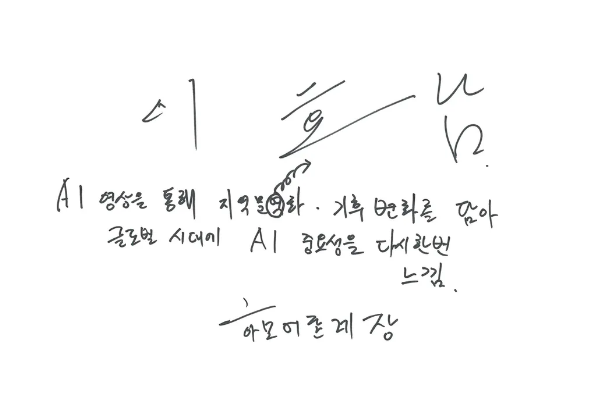 이 흐 남
AI 영상을 통해 지역문화. 기후변화를 담아
글로벌 시대에 AI 중요성을 다시한번
느낌.